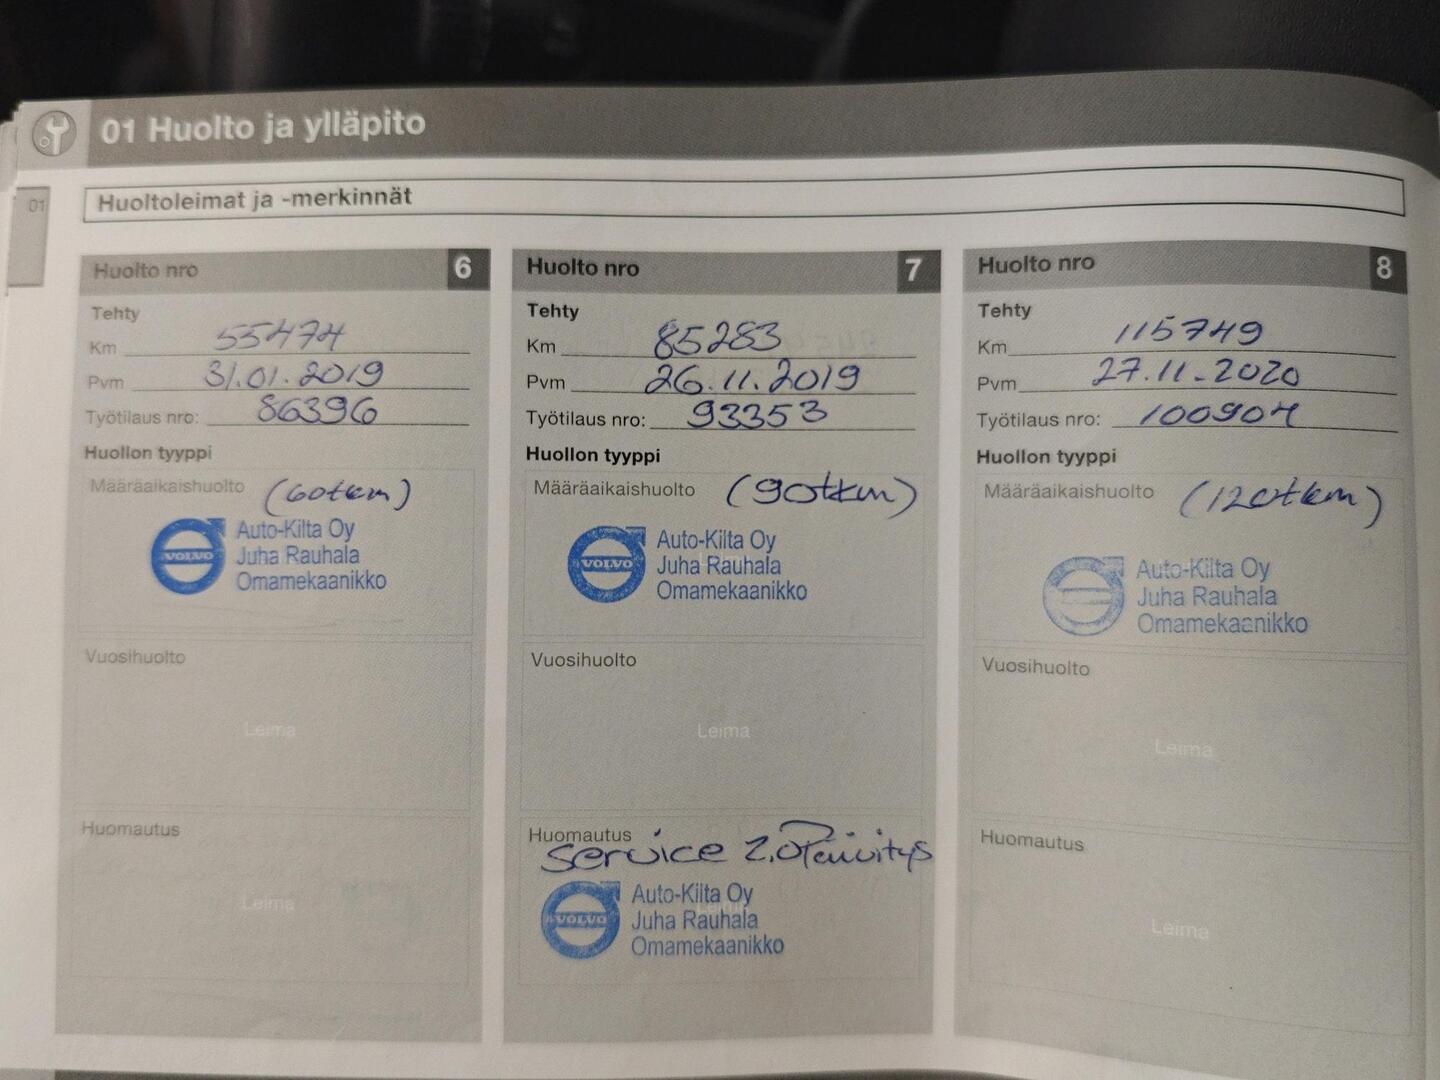 01 Huolto ja ylläpito
01
Huoltoleimat ja -merkinnät
Huolto nro 6
Tehty
Km 55474
Pvm 31.01.2019
Työtilaus nro: 86396
Huollon tyyppi
Määräaikaishuolto (60tkm)
VOLVO
Auto-Kilta Oy
Juha Rauhala
Omamekaanikko
Vuosihuolto
Leima
Huomautus
Leima
Huolto nro 7
Tehty
Km 85283
Pvm 26.11.2019
Työtilaus nro: 93353
Huollon tyyppi
Määräaikaishuolto (90tkm)
Leima
VOLVO
Auto-Kilta Oy
Juha Rauhala
Omamekaanikko
Vuosihuolto
Leima
Huomautus
Service 2.0 Päivitys
Leima
VOLVO
Auto-Kilta Oy
Juha Rauhala
Omamekaanikko
Huolto nro 8
Tehty
Km 115749
Pvm 27.11.2020
Työtilaus nro: 100904
Huollon tyyppi
Määräaikaishuolto (120tkm)
Auto-Kilta Oy
Juha Rauhala
Omamekaanikko
Vuosihuolto
Leima
Huomautus
Leima